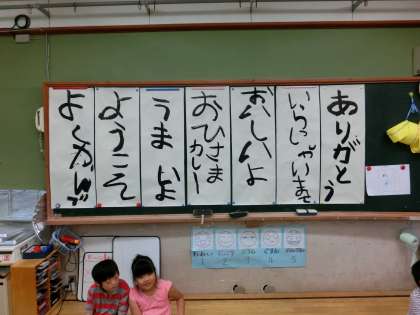 ありがとう
いらっしゃいませ
おいしいよ
おひさま
カレー
うまいよ
ようこそ
よくかんで
1 2 3 4 5